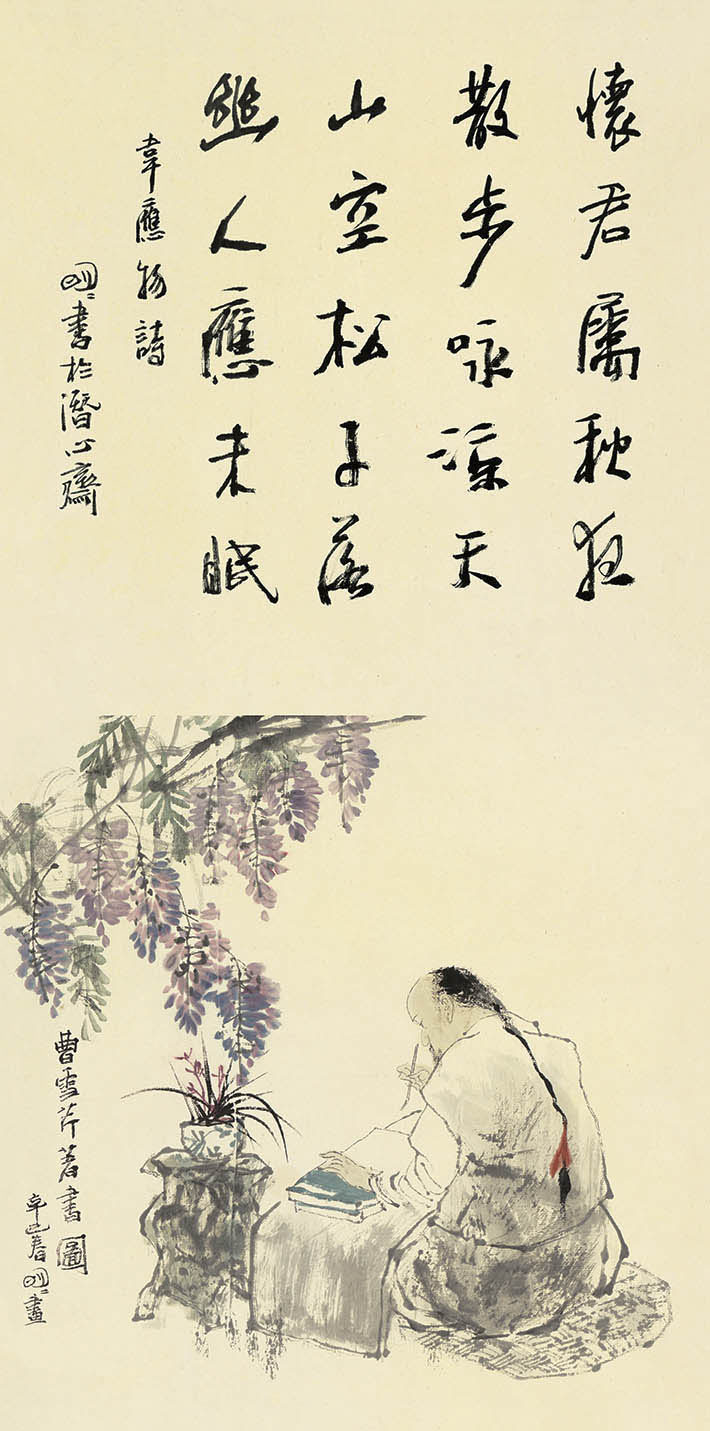 懷君屬秋夜
散步咏涼天
山空松子落
幽人應未眠
韋應物詩
書於潛心齋
曹雪芹著書圖
辛巳春 畫